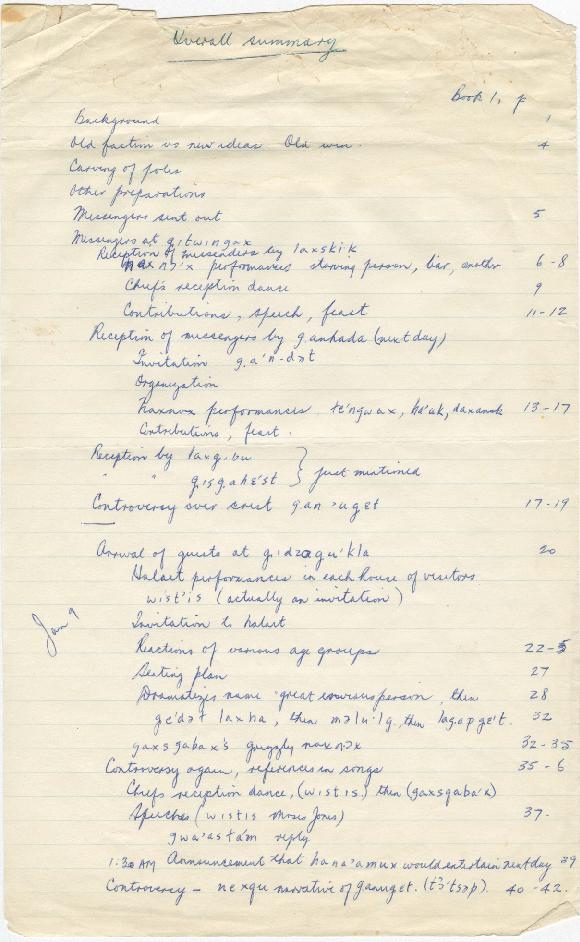 Overall summary
Book 1, p
Background 1
Old faction vs new ideas Old win. 4
Carving of poles
Other preparations
Messengers sent out 5
Messengers at gitwingax
Reception of messengers by laxskik
naxnɔ'x performances starving person, liar, another 6-8
Chief's reception dance 9
Contributions, speech, feast 11-12
Reception of messengers by ganhada (next day)
Invitation
Organization
performances 13-17
Contributions, feast.
Reception by laxgibu
" " just mentioned
Controversy over crest 17-19
Arrival of guests at 20
Halait performances in each house of visitors
wist'is (actually an invitation)
Jan 9
Invitation to halait
Reactions of various age groups 22-5
Seating plan 27
Dramatizes name "great person, then 28
laxha, then then 32
grizzly 32-35
Controversy again, references in songs 35-6
Chiefs reception dance, (wistis) then
Speeches (wistis Moses Jones) 37.
reply
1.30 AM Announcement that would entertain next day 39
Controversy - narrative of 40-42.